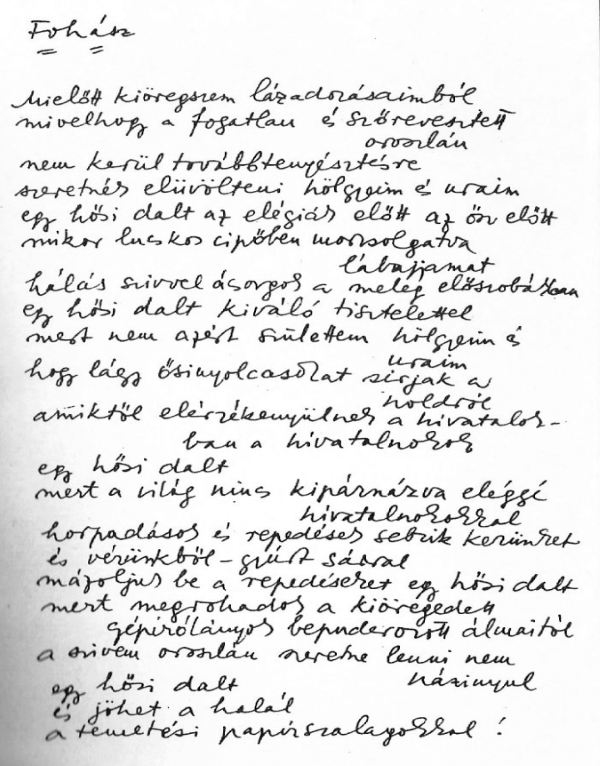 Fohász
Mielőtt kiöregszem lázadozásaimból
mivelhogy a fogatlan és szőrevesztett
oroszlán
nem kerül továbbtenyésztésre
szeretnék elüvölteni hölgyeim és uraim
egy hősi dalt az elégiák előtt az ősz előtt
mikor lucskos cipőben morzsolgatva
lábujjamat
hálás szivvel ácsorgok a meleg előszobákban
egy hősi dalt kiváló tisztelettel
mert nem azért születtem hölgyeim és
uraim
hogy lágy ősinyolcasokat sirjak a
holdról
amiktől elérzékenyülnek a hivatalok-
ban a hivatalnokok
egy hősi dalt
mert a világ nincs kipárnázva eléggé
hivatalnokokkal
horpadások és repedések sebzik kezünket
és vérünkből-gyúrt sárral
mázoljuk be a repedéseket egy hősi dalt
mert megrohadok a kiöregedett
gépirólányok bepuderozott álmaitól
a szivem oroszlán szeretne lenni nem
házinyul
egy hősi dalt
és jöhet a halál
a temetési papirszalagokkal!